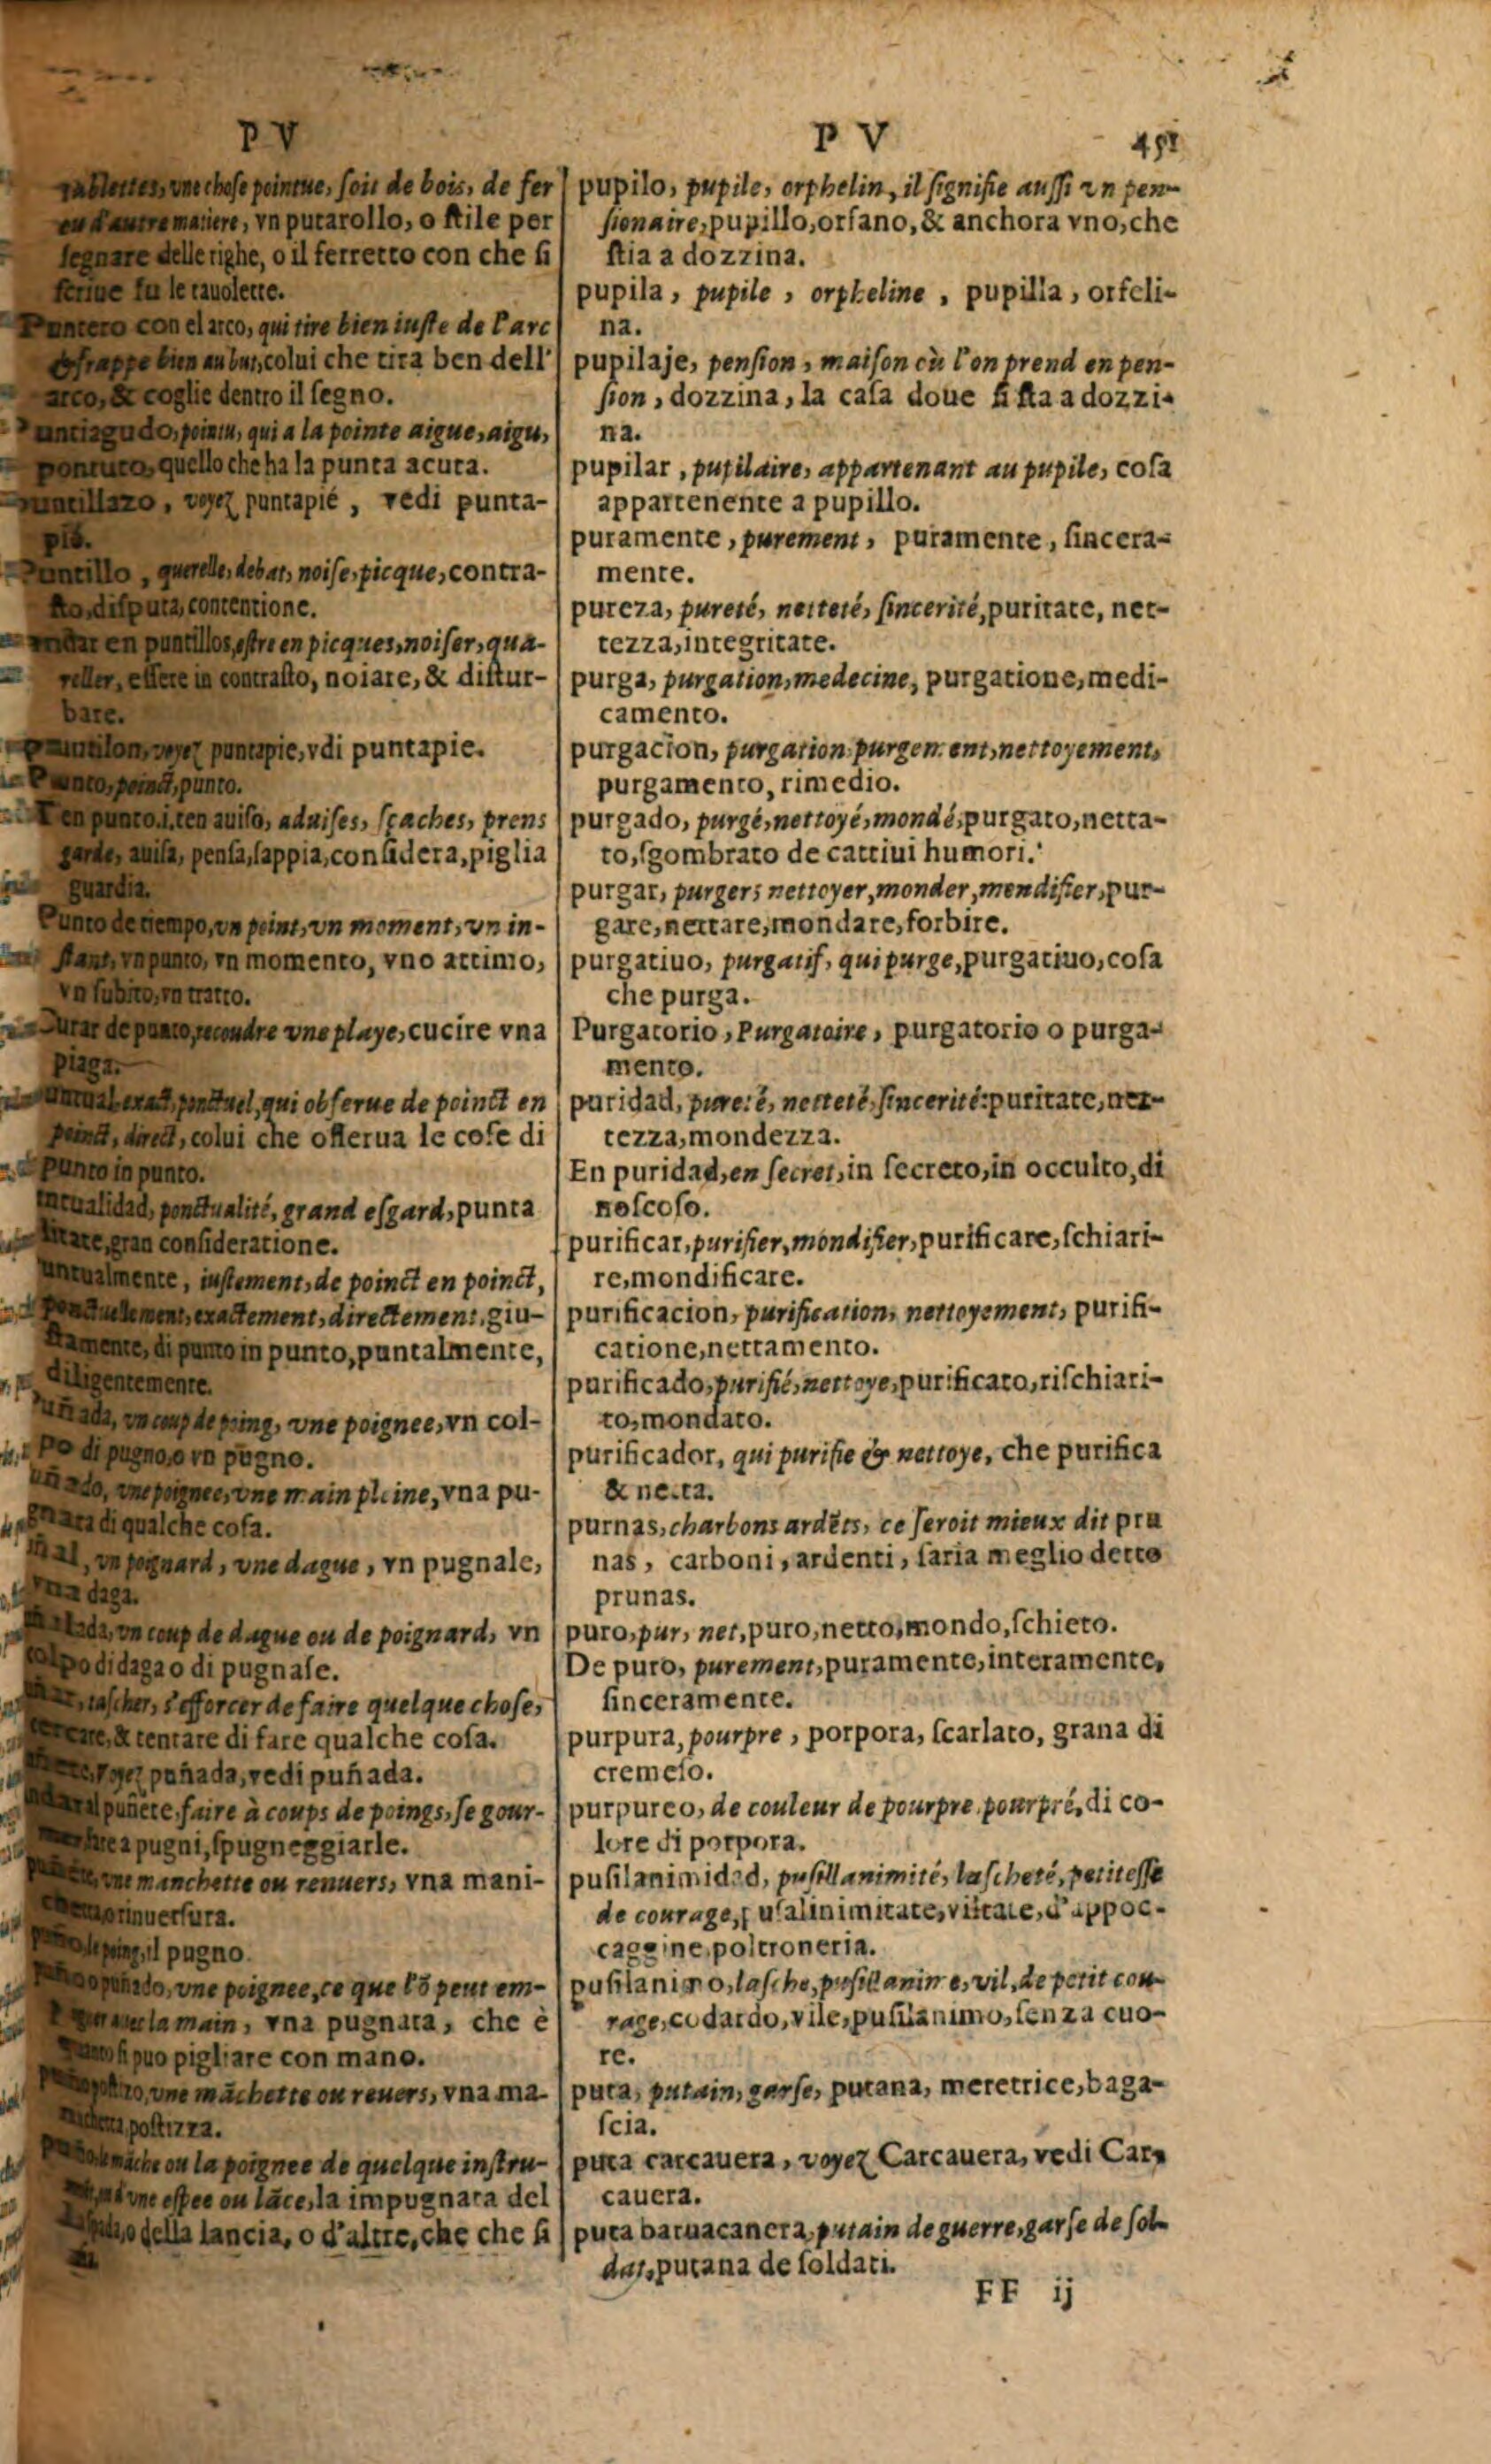 P V
tablettes, vne chose pointue, soit de bois, de fer
ou d'autre matiere, vn putarollo, o stile per
segnare delle righe, o il ferretto con che si
scriue su le tauolette.
Puntero con el arco, qui tire bien iuste de l'arc
& frappe bien au but, colui che tira ben dell'
arco, & coglie dentro il segno.
Puntiagudo, pointu, qui a la pointe aigue, aigu,
pontuto, quello che ha la punta acuta.
puntillazo, voyez puntapié, vedi punta-
pié.
Puntillo, querelle, debat, noise, picque, contra-
sto, disputa, contentione.
andar en puntillos, estre en picques, noiser, qua-
reller, essere in contrasto, noiare, & distur-
bare.
puntilon, voyez puntapie, vdi puntapie.
Punto, poinct, punto.
Ten punto.i.ten auiso, aduises, sçaches, prens
garde, auisa, pensa, sappia, considera, piglia
guardia.
Punto de tiempo, vn point, vn moment, vn in-
stant, vn punto, vn momento, vno attimo,
vn subito, vn tratto.
Curar de punto, recoudre vne playe, cucire vna
piaga.
exact, ponctuel, qui obserue de poinct en
poinct, direct, colui che osserua le cose di
punto in punto.
ponctualité, grand esgard, punta
litate, gran consideratione.
iustement, de poinct en poinct,
ponctuelement, exactement, directement, giu-
stamente, di punto in punto, puntalmente,
diligentemente.
vn coup de poing, vne poignee, vn col-
po di pugno, o vn pugno.
vne poignee, vne main pleine, vna pu-
gnata di qualche cosa.
vn poignard, vne dague, vn pugnale,
vna daga.
vn coup de dague ou de poignard, vn
colpo di daga o di pugnase.
tascher, s'efforcer de faire quelque chose,
cercare, & tentare di fare qualche cosa.
voyez puñada, vedi puñada.
puñete, faire à coups de poings, se gour-
a pugni, spugneggiarle.
vne manchette ou renuers, vna mani-
o rinuersura.
le poing, il pugno.
o puñado, vne poignee, ce que l'õ peut em-
la main, vna pugnata, che è
si puo pigliare con mano.
vne mãchette ou reuers, vna ma-
postizza.
le mãche ou la poignee de quelque instru-
vne espee ou lãce, la impugnata del
o della lancia, o d'altre, che che si
P V 451
pupilo, pupile, orphelin, il signifie aussi vn pen-
sionaire, pupillo, orfano, & anchora vno, che
stia a dozzina.
pupila, pupile, orpheline, pupilla, orfeli-
na.
pupilaje, pension, maison où l'on prend en pen-
sion, dozzina, la casa doue si sta a dozzi-
na.
pupilar, pupilaire, appartenant au pupile, cosa
appartenente a pupillo.
puramente, purement, puramente, sincera-
mente.
pureza, pureté, netteté, sincerité, puritate, net-
tezza, integritate.
purga, purgation, medecine, purgatione, medi-
camento.
purgacion, purgation, purgement, nettoyement,
purgamento, rimedio.
purgado, purgé, nettoyé, mondé, purgato, netta-
to, sgombrato de cattiui humori.
purgar, purger, nettoyer, monder, mendifier, pur-
gare, nettare, mondare, forbire.
purgatiuo, purgatif, qui purge, purgatiuo, cosa
che purga.
Purgatorio, Purgatoire, purgatorio o purga-
mento.
puridad, pureté, netteté, sincerité: puritate, net-
tezza, mondezza.
En puridad, en secret, in secreto, in occulto, di
noscoso.
purificar, purifier, mondifier, purificare, schiari-
re, mondificare.
purificacion, purification, nettoyement, purifi-
catione, nettamento.
purificado, purifié, nettoye, purificato, rischiari-
to, mondato.
purificador, qui purifie & nettoye, che purifica
& netta.
purnas, charbons ardẽts, ce seroit mieux dit pru
nas, carboni, ardenti, saria meglio detto
prunas.
puro, pur, net, puro, netto, mondo, schieto.
De puro, purement, puramente, interamente,
sinceramente.
purpura, pourpre, porpora, scarlato, grana di
cremeso.
purpureo, de couleur de pourpre, pourpré, di co-
lore di porpora.
pusilanimidad, pusillanimité, lascheté, petitesse
de courage, pusalinimitate, viltate, d'appoc-
caggine, poltroneria.
pusilanimo, lasche, pusillanime, vil, de petit cou-
rage, codardo, vile, pusilanimo, senza cuo-
re.
puta, putain, garse, putana, meretrice, baga-
scia.
puta carcauera, voyez Carcauera, vedi Car-
cauera.
puta baruacanera, putain de guerre, garse de sol-
dat, putana de soldati.
FF ij